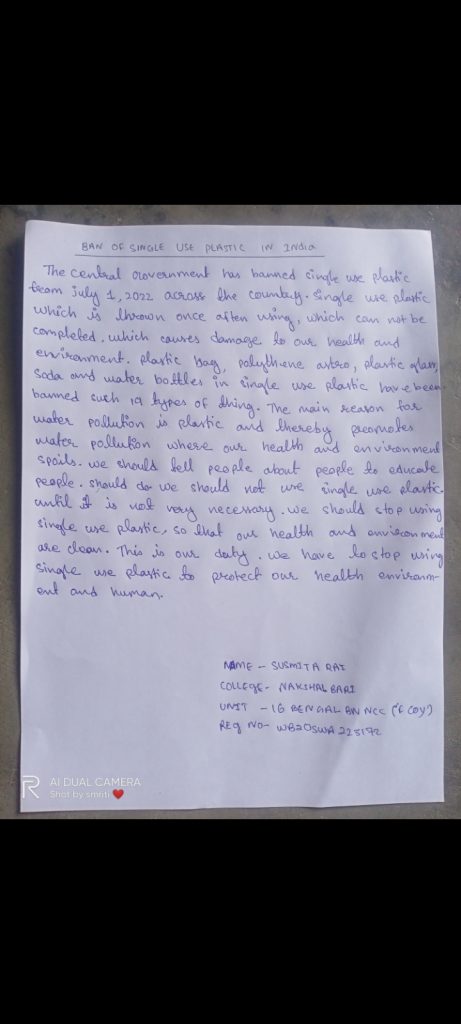 BAN OF SINGLE USE PLASTIC IN INDIA
The central Government has banned single use plastic
from july 1, 2022 across the country. Single use plastic
which is thrown once after using, which can not be
completed, which causes damage to our health and
environment. plastic bag, polythene astro, plastic glass,
Soda and water bottles in single use plastic have been
banned such 19 types of thing. The main reason for
water pollution is plastic and thereby promotes
water pollution where our health and environment
spoils. we should tell people about people to educate
people. should do we should not use single use plastic
until it is not very necessary. we should stop using
single use plastic, so that our health and environment
are clean. This is our duty. we have to stop using
single use plastic to protect our health environm-
ent and human.
NAME - SUSMITA RAI
COLLEGE - NAKSHAL BARI
UNIT - 16 BENGAL BN NCC ('E COY')
REG NO-
AI DUAL CAMERA
Shot by smriti ❤